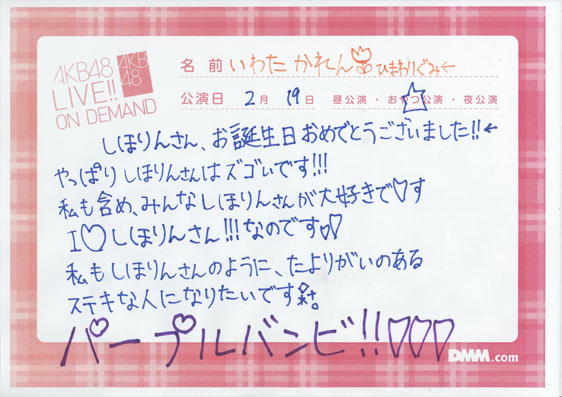 AKB48
LIVE!!
ON DEMAND
AKB
48
名前 いわた かれん ひまわりぐみ←
公演日 2月19日 昼公演・おやつ公演・夜公演
しほりんさん、お誕生日おめでとうございました!!←
やっぱりしほりんさんはズゴいです!!!
私も含め、みんなしほりんさんが大好きで♡す
I♡しほりんさん!!!なのです♡♡
私もしほりんさんのように、たよりがいのある
ステキな人になりたいです
パープルバンビ!!♡♡♡
DMM.com